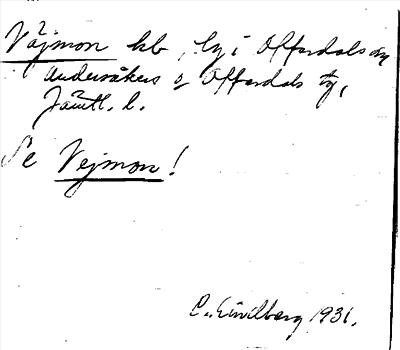 Väjmon hb, by i Offerdals sn
Undersåkers o Offerdals tg,
Jämtl. l.
Se Vejmon!
C. Lindberg 1931.